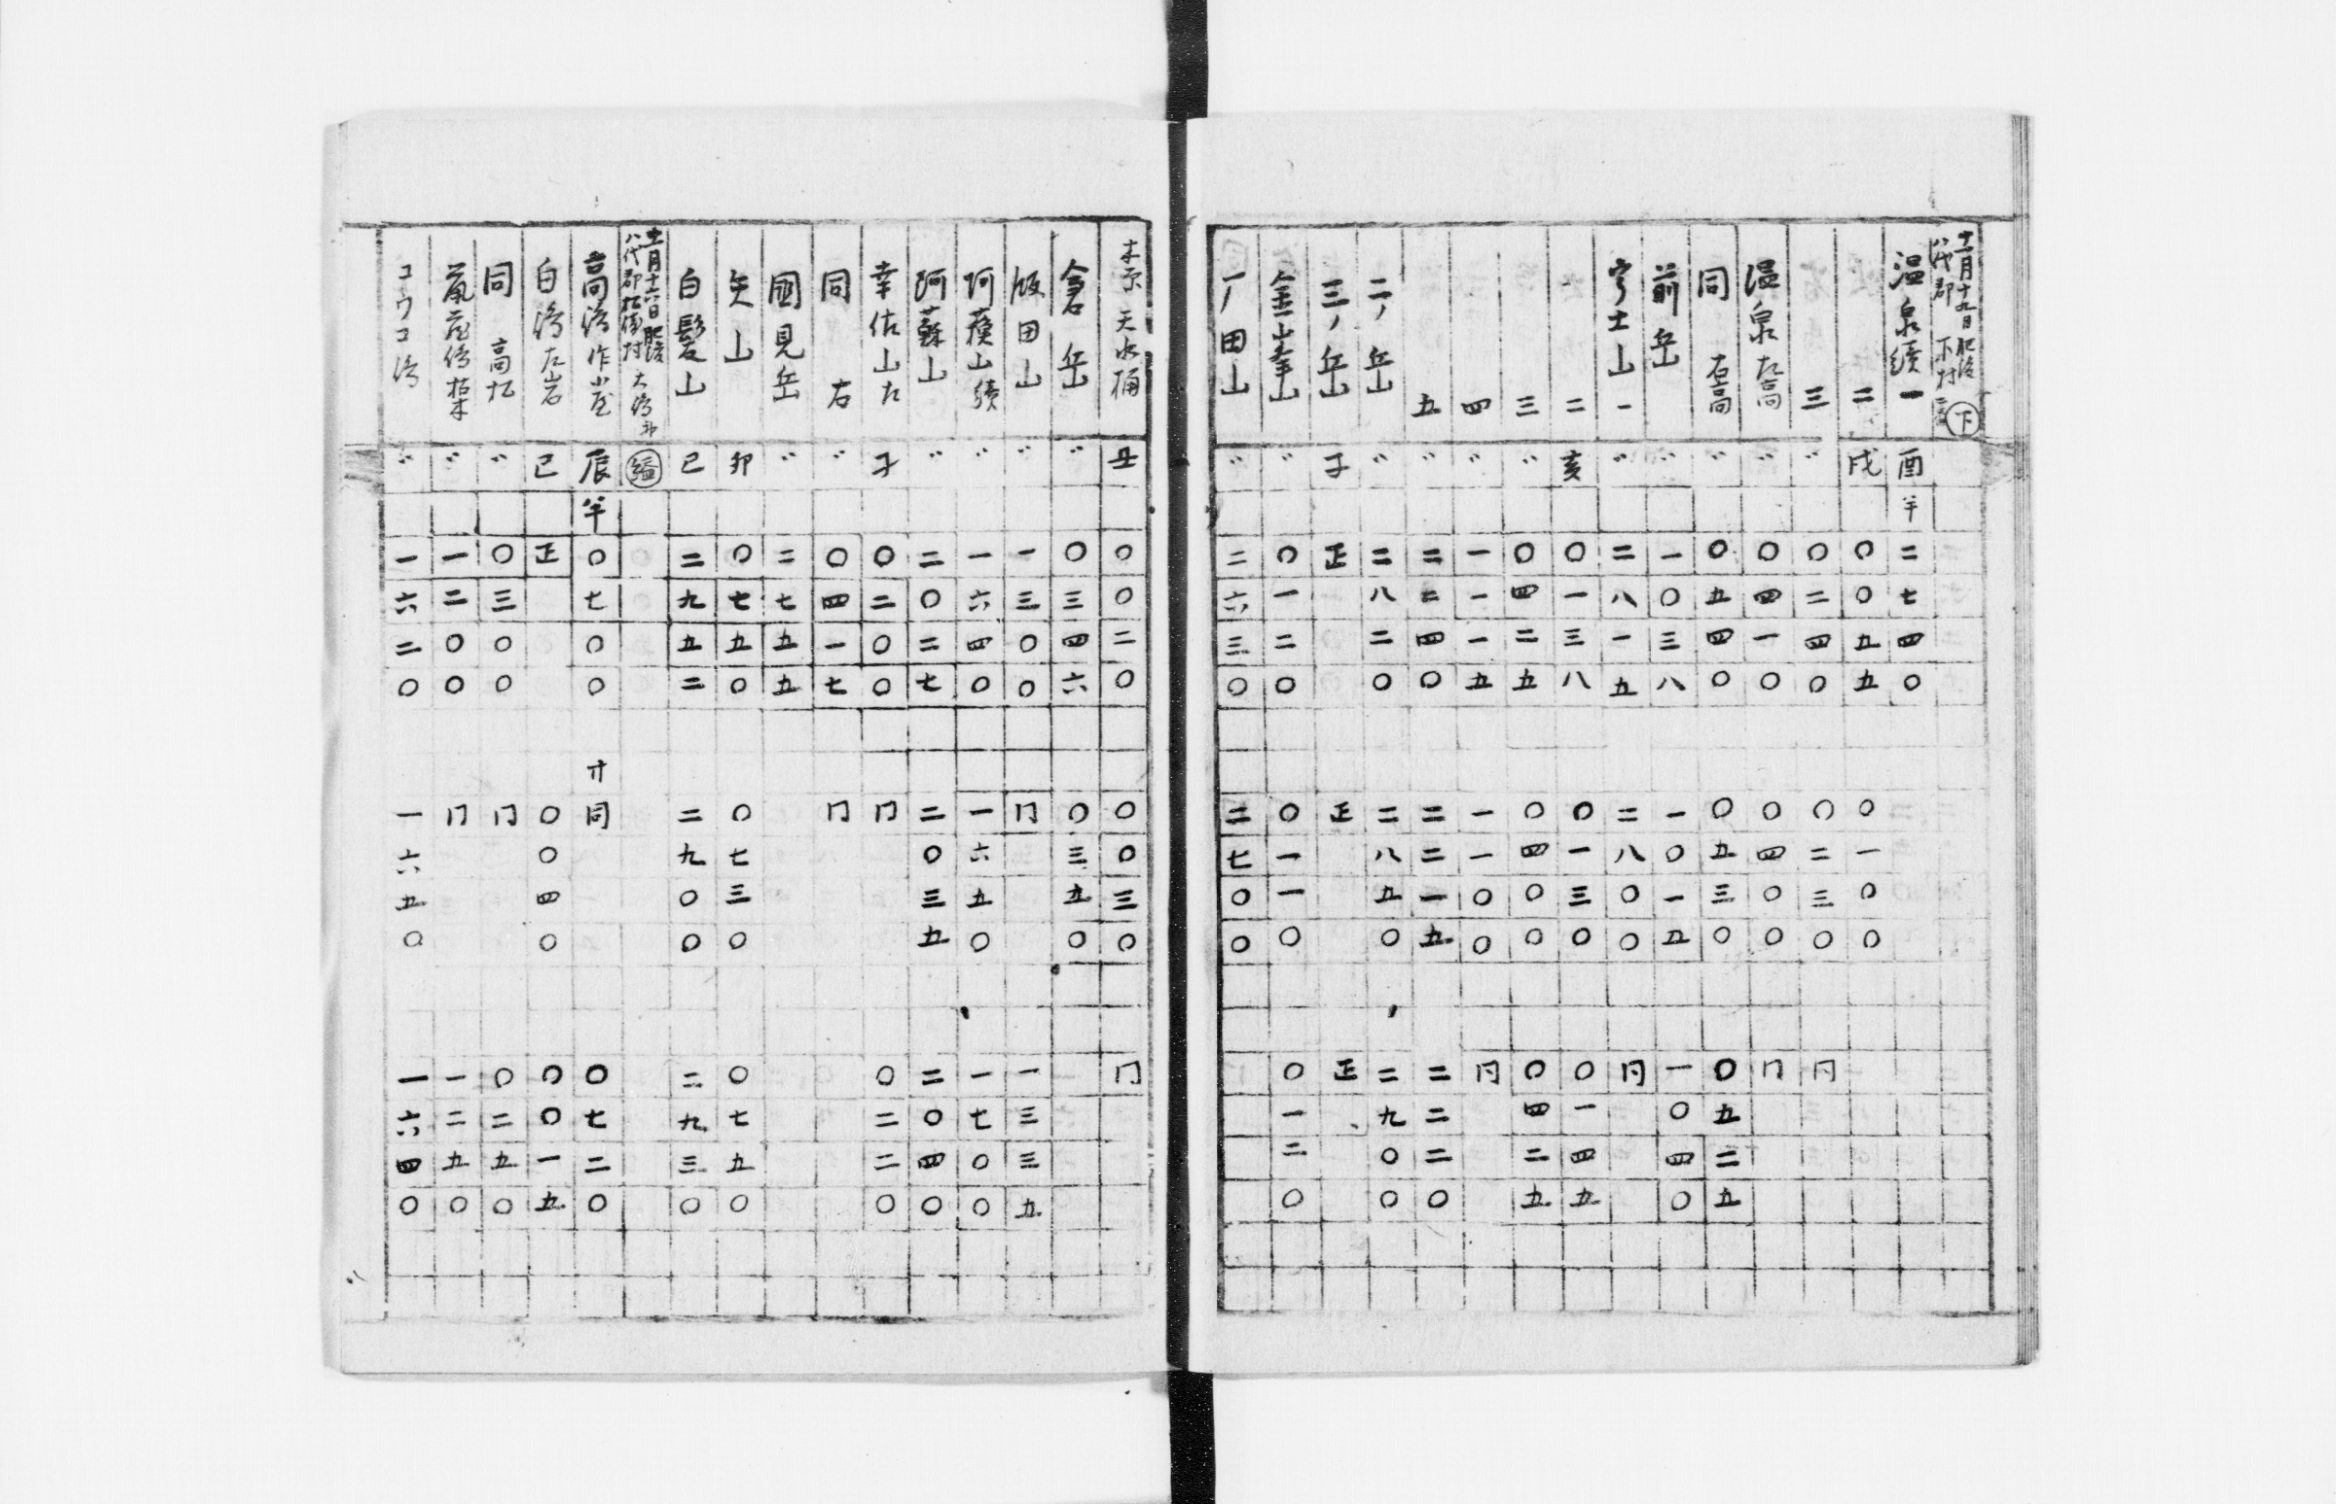 十一月十九日 肥後
八代郡 下村 下
温泉續一 酉 半 二七四〇
二 戌 〇〇五五 〇一〇〇
三 〃 〇二四〇 〇二三〇 同
温泉左高 〃 〇四一〇 〇四〇〇 同
同 右高 〃 〇五四〇 〇五三〇 〇五二五
前岳 〃 一〇三八 一〇一五 一〇四〇
宇土山一 〃 二八一五 二八〇〇 同
二 亥 〇一三八 〇一三〇 〇一四五
三 〃 〇四二五 〇四〇〇 〇四二五
四 〃 一一一五 一一〇〇 同
五 〃 二二四〇 二二一五 二二二〇
二ノ岳 〃 二八二〇 二八五〇 二九〇〇
三ノ岳 子 正 正 正
金峯山 〃 〇一二〇 〇一一〇 〇一二〇
ノ田山 〃 二六三〇 二七〇〇
木原天水桶 丑 〇〇二〇 〇〇三〇 同
倉岳 〃 〇三四六 〇三五〇
飯田山 〃 一三〇〇 同 一三三五
阿蘓山續 〃 一六四〇 一六五〇 一七〇〇
阿蘓山 〃 二〇二七 二〇三五 二〇四〇
幸佐山左 子 〇二〇〇 同 〇二二〇
同 右 〃 〇四一七 同
國見岳 〃 二七五五
矢山 卯 〇七五〇 〇七三〇 〇七五〇
白髪山 巳 二九五二 二九〇〇 二九三〇
十一月十六日 肥後
八代郡 村 大
高 作小屋 辰 半 〇七〇〇 才同 〇七二〇
白 左岩 巳 正 〇〇四〇 〇〇一五
同 高 〃 〇三〇〇 同 〇二五〇
〃 一二〇〇 同 一二五〇
コウコ 〃 一六二〇 一六五〇 一六四〇